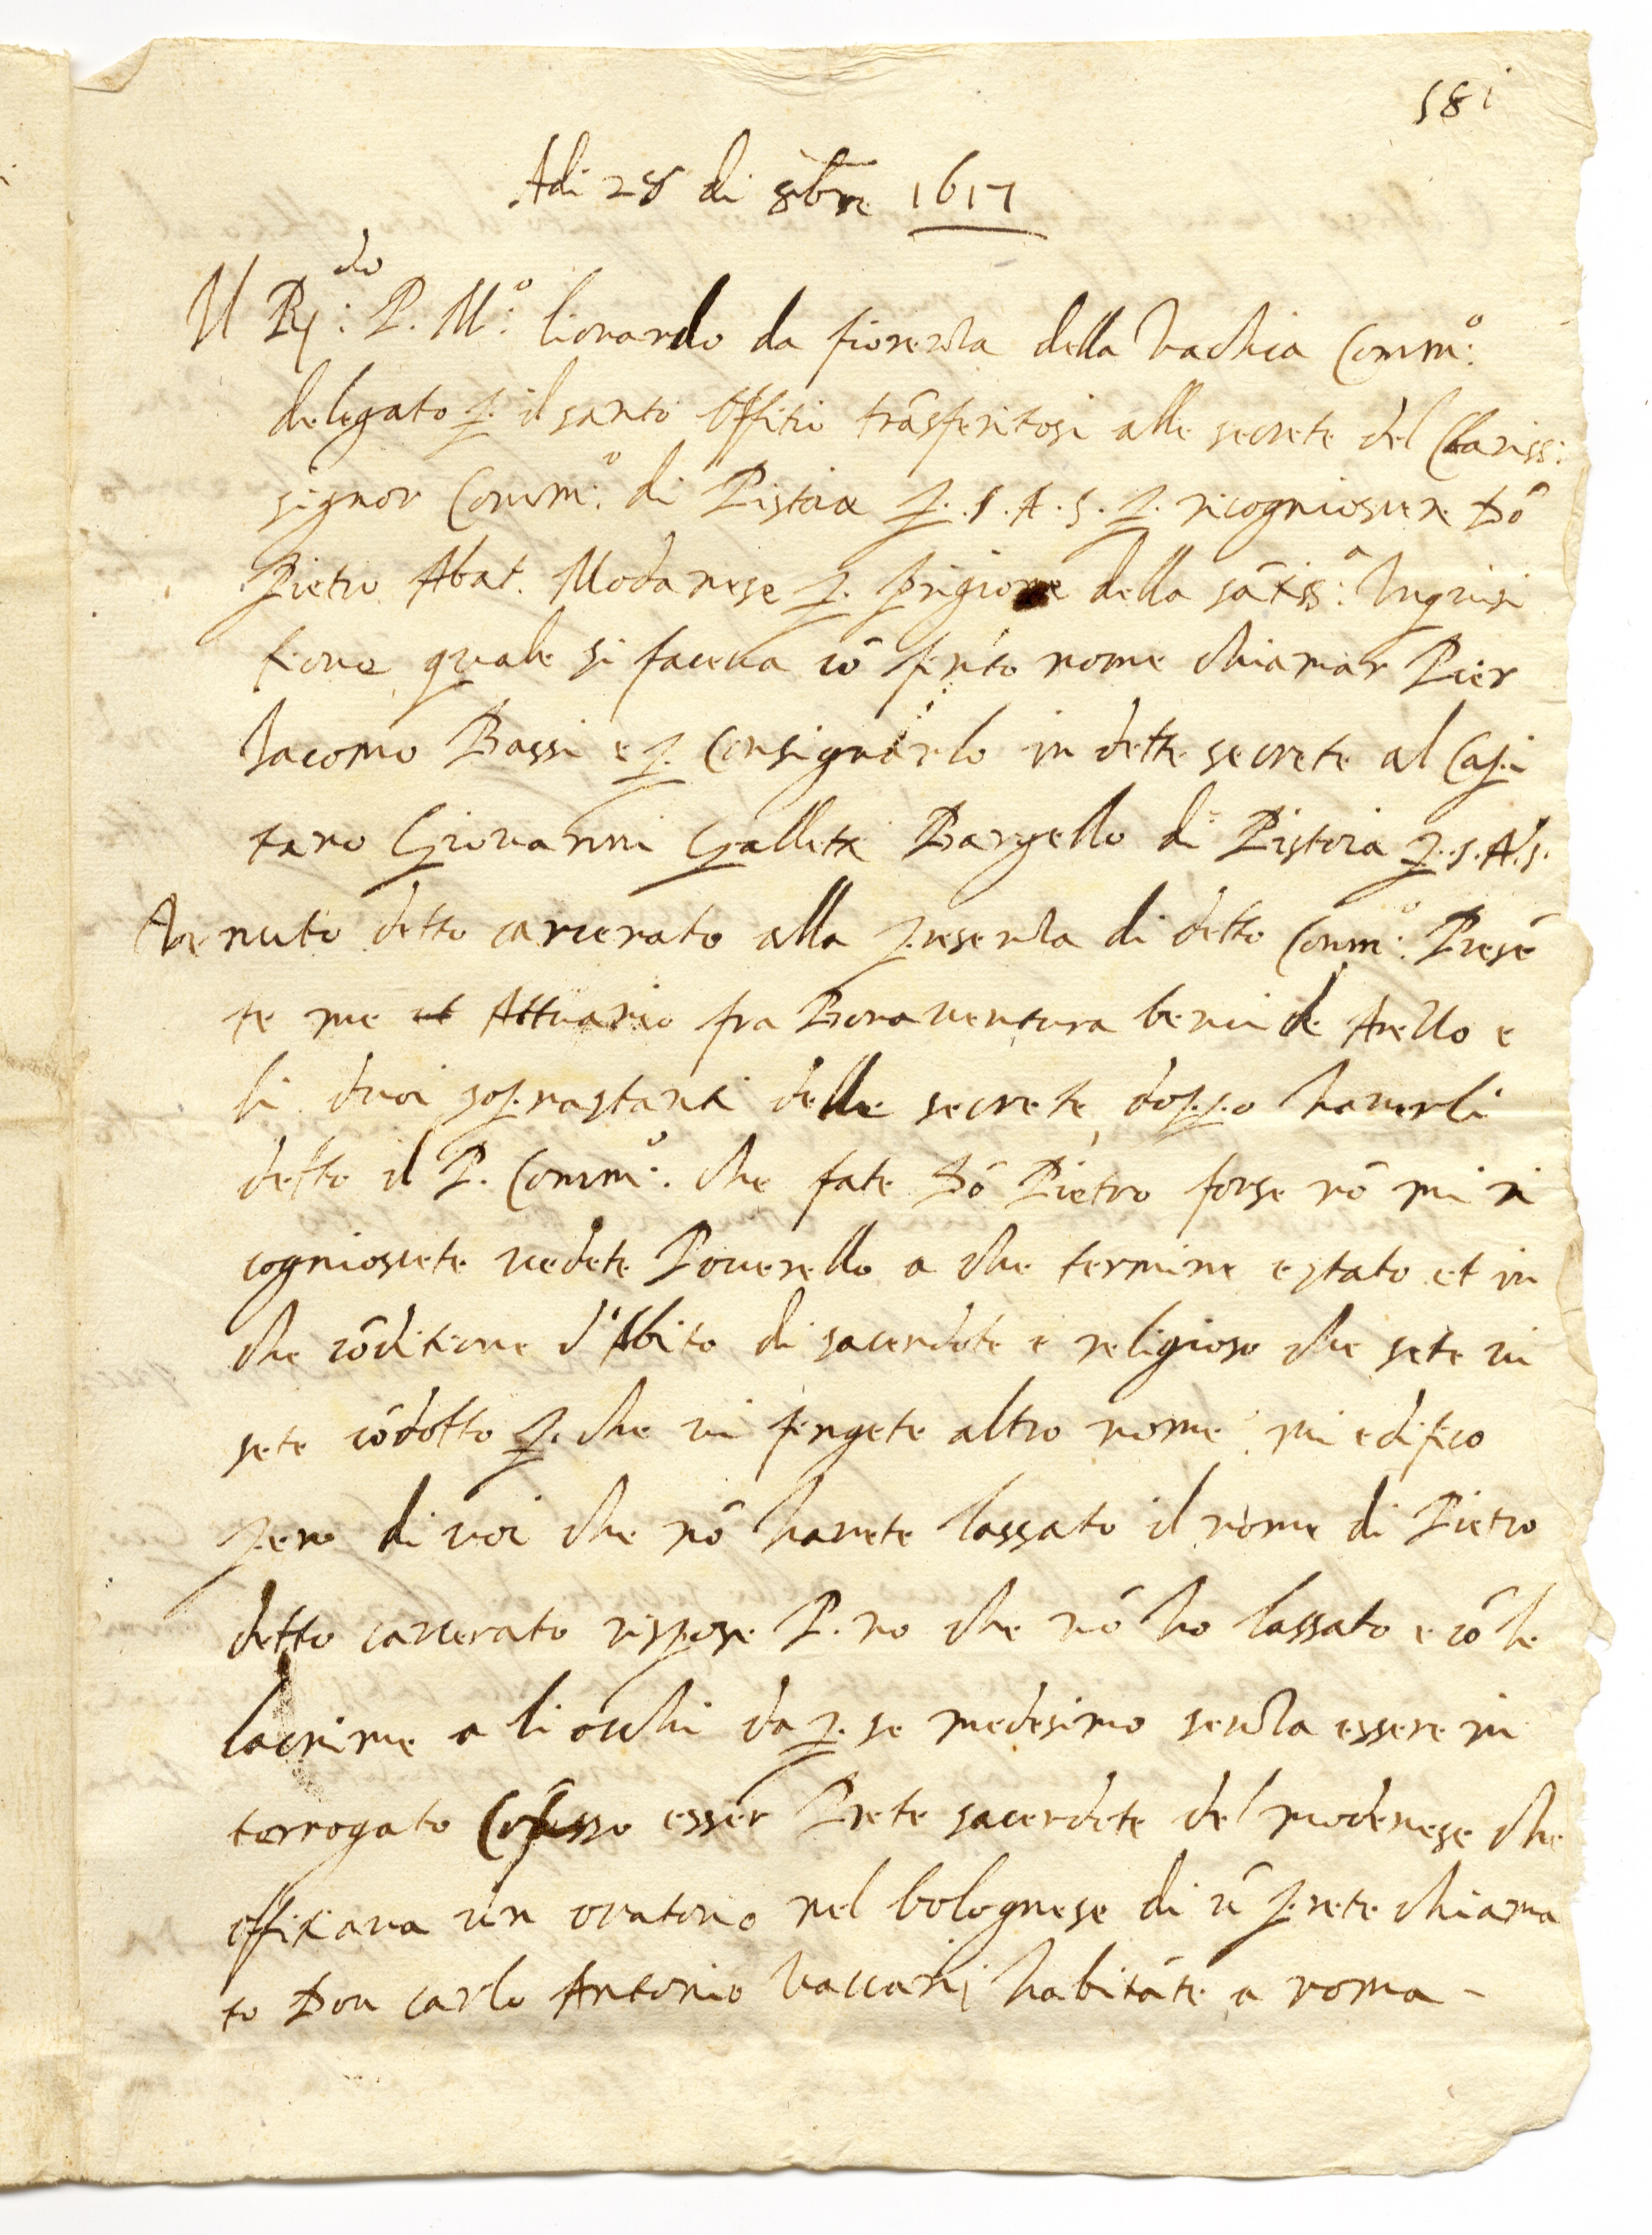 581
Adi 28 di 8bre 1617
Il R.do P. M.o lionardo da fiorenza della Vachia Comm.o
delegato p. il santo Offitio trāsferitosi alle secrete del Clariss:
signor Comm.o di Pistoia p. S. A. S. p. ricognioscere Dō
Pietro Abat. Modanese p. prigione della sātiss.a Inquisi
tione quale si faceva cō finto nome chiamar Pier
Iacomo Bassi e p. Consignarlo in dette secrete al Capi
tano Giovanni Galletti Bargello di Pistoia p. S. A. S.
Venuto detto carcerato alla presenza di detto Comm.o Presē
te me Attuario fra Bonaventura de Arezzo e
li duoi soprastanti delle secrete, doppo haverli
detto il P. Comm.o che fate Dō Pietro forse nō mi ri
cogniosciete vedete Poverello a che termine e stato et in
che cōditione d'Abito di sacerdote e religioso che sete vi
sete cōdotto p. che vi fingete altro nome mi edifico
pero di voi che nō havete lassato il nome di Pietro
detto carcerato rispose P. no che nō ho lassato e cō le
lacrime a li occhi da p. se medesimo senza essere in
terrogato Cōfesso esser Prete sacerdote del modenese che
offitiava un oratorio nel bolognese di ū prete chiama
to Don carlo Antonio Vaccari habitāte a roma -